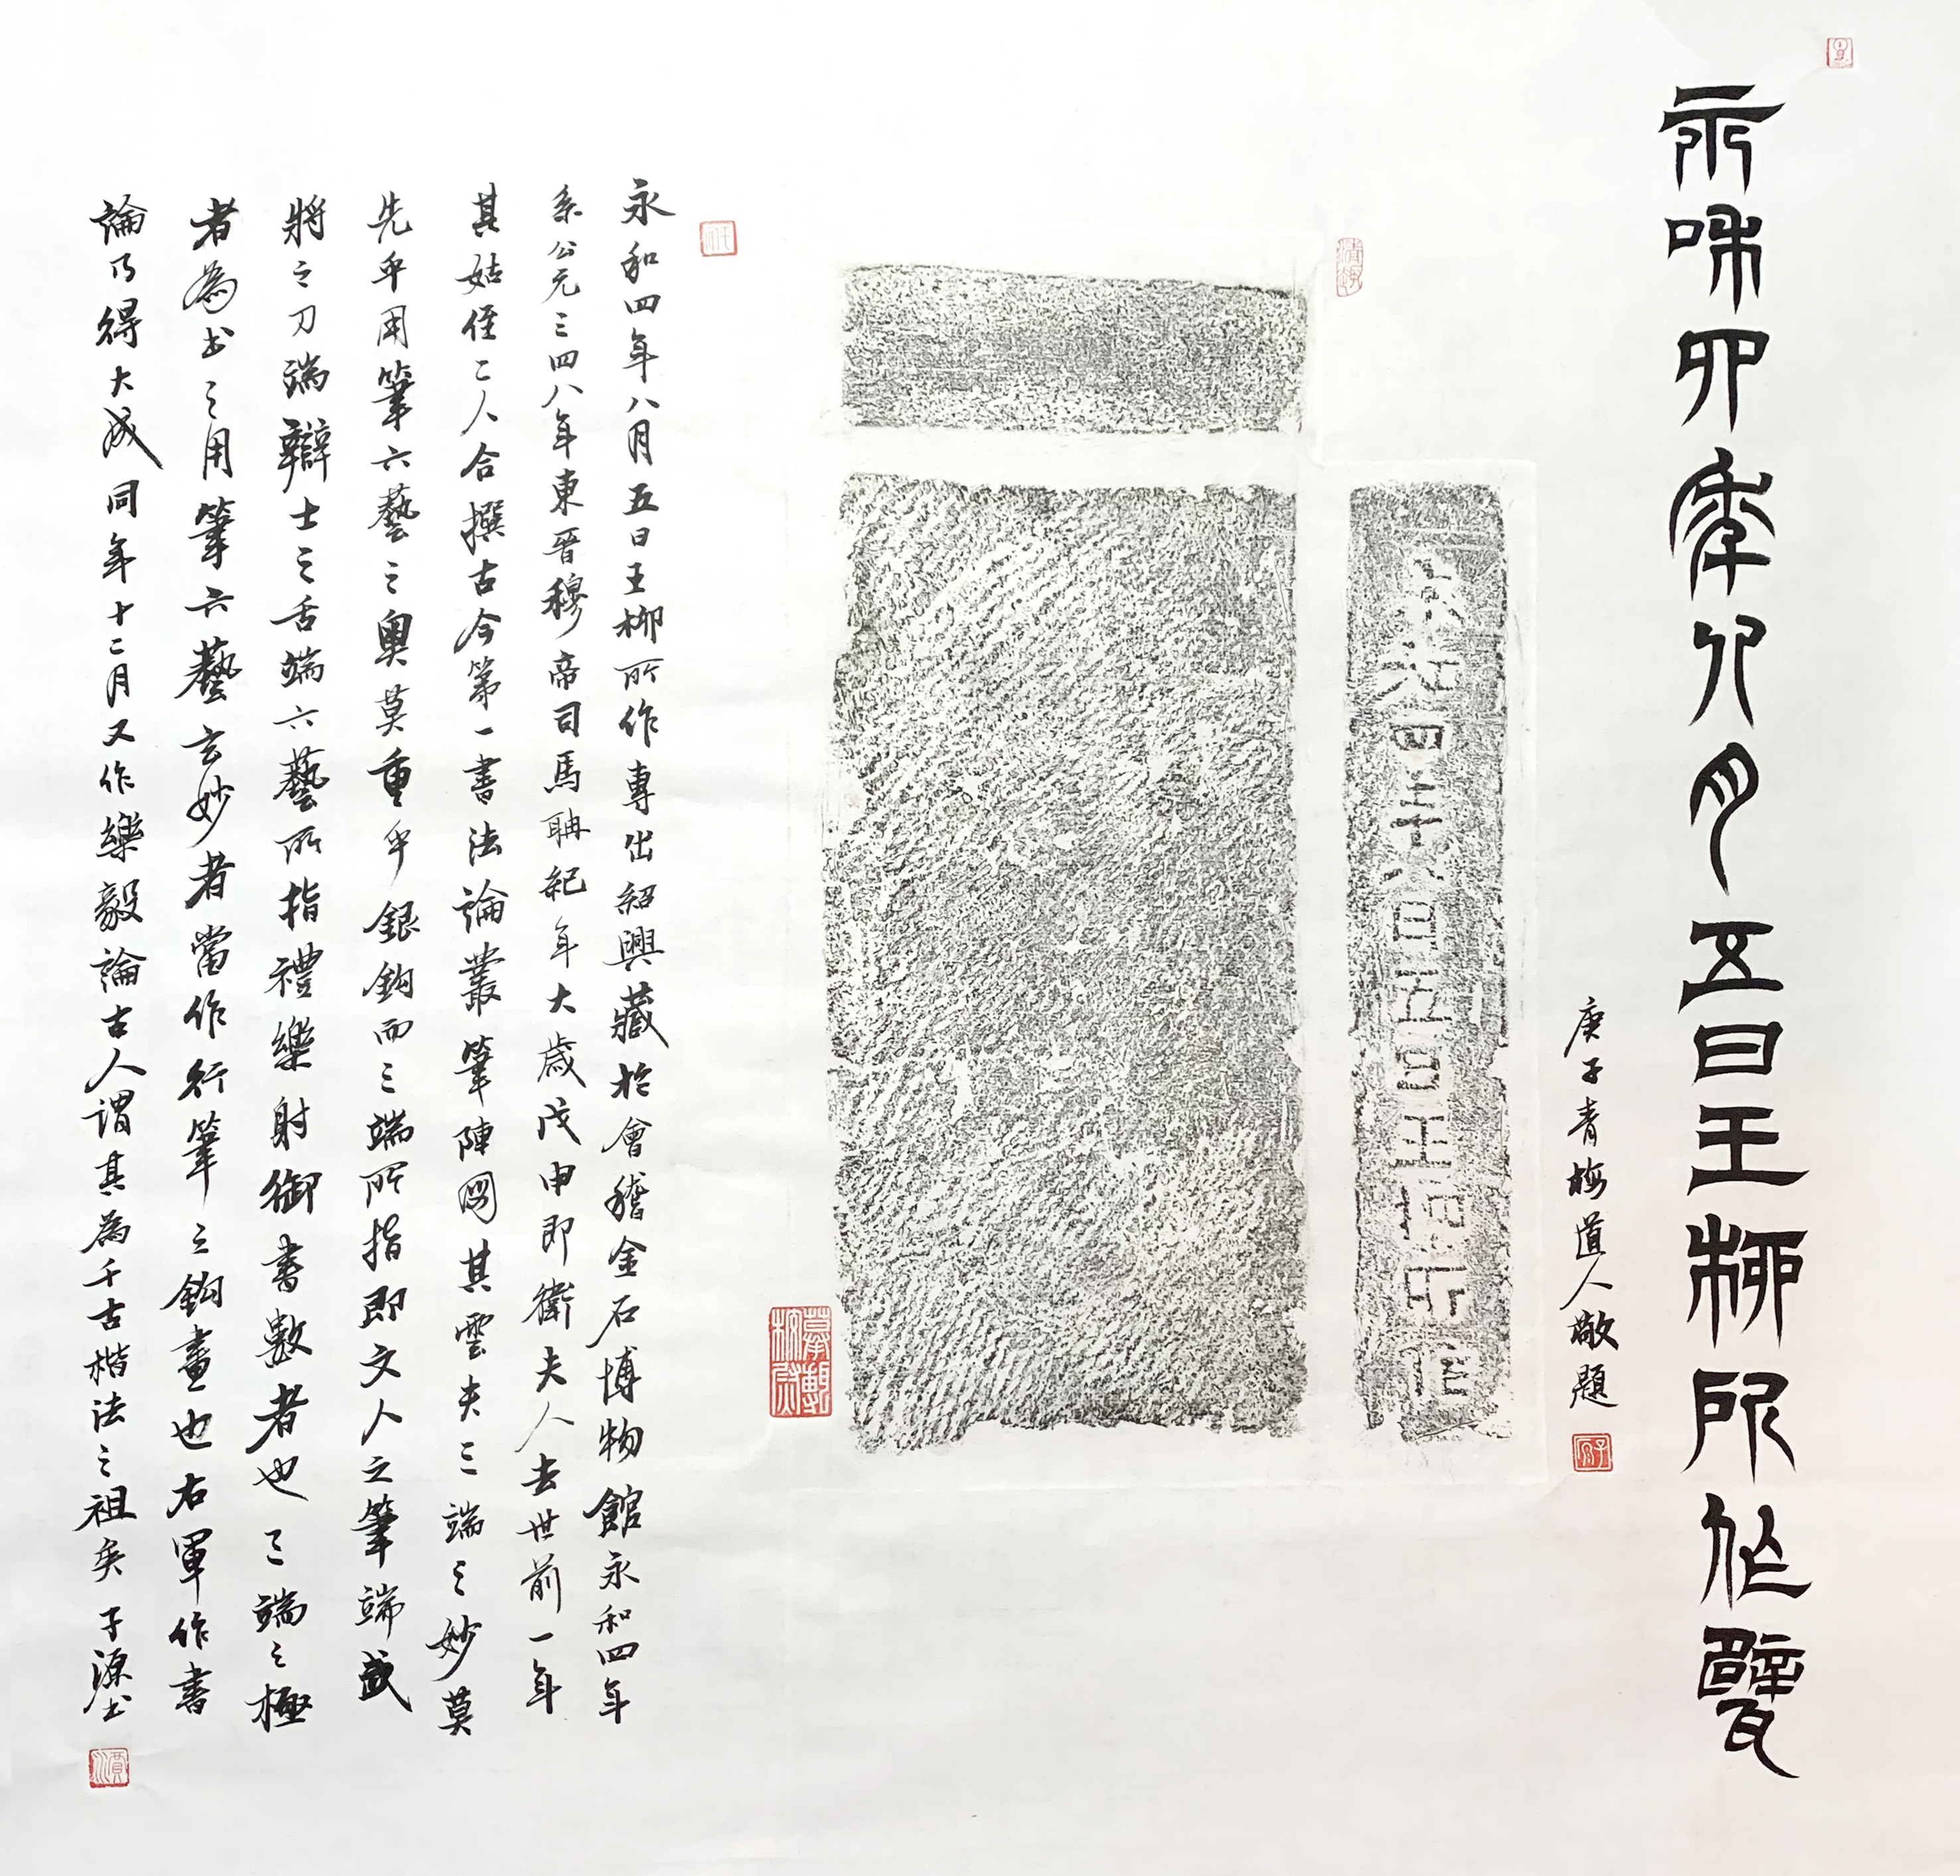 永和四年八月五日王柳所作甓
庚子青梅道人敬題
永和四年八月五日王柳所作
永和四年八月五日王柳所作專出紹興藏於會稽金石博物館永和四年
系公元三四八年東晉穆帝司馬聃紀年大歲戊申即衛夫人去世前一年
其姑侄二人合撰古今第一書法論叢筆陣圖其雲夫三端之妙莫
先乎用筆六藝之奧莫重乎銀鉤而三端所指即文人之筆端武
將之刀端辯士之舌端六藝所指禮樂射御書數者也三端之極
者為書之用筆六藝玄妙者當作行筆之鉤畫也右軍作書
論乃得大成同年十二月又作樂毅論古人謂其為千古楷法之祖矣子源書